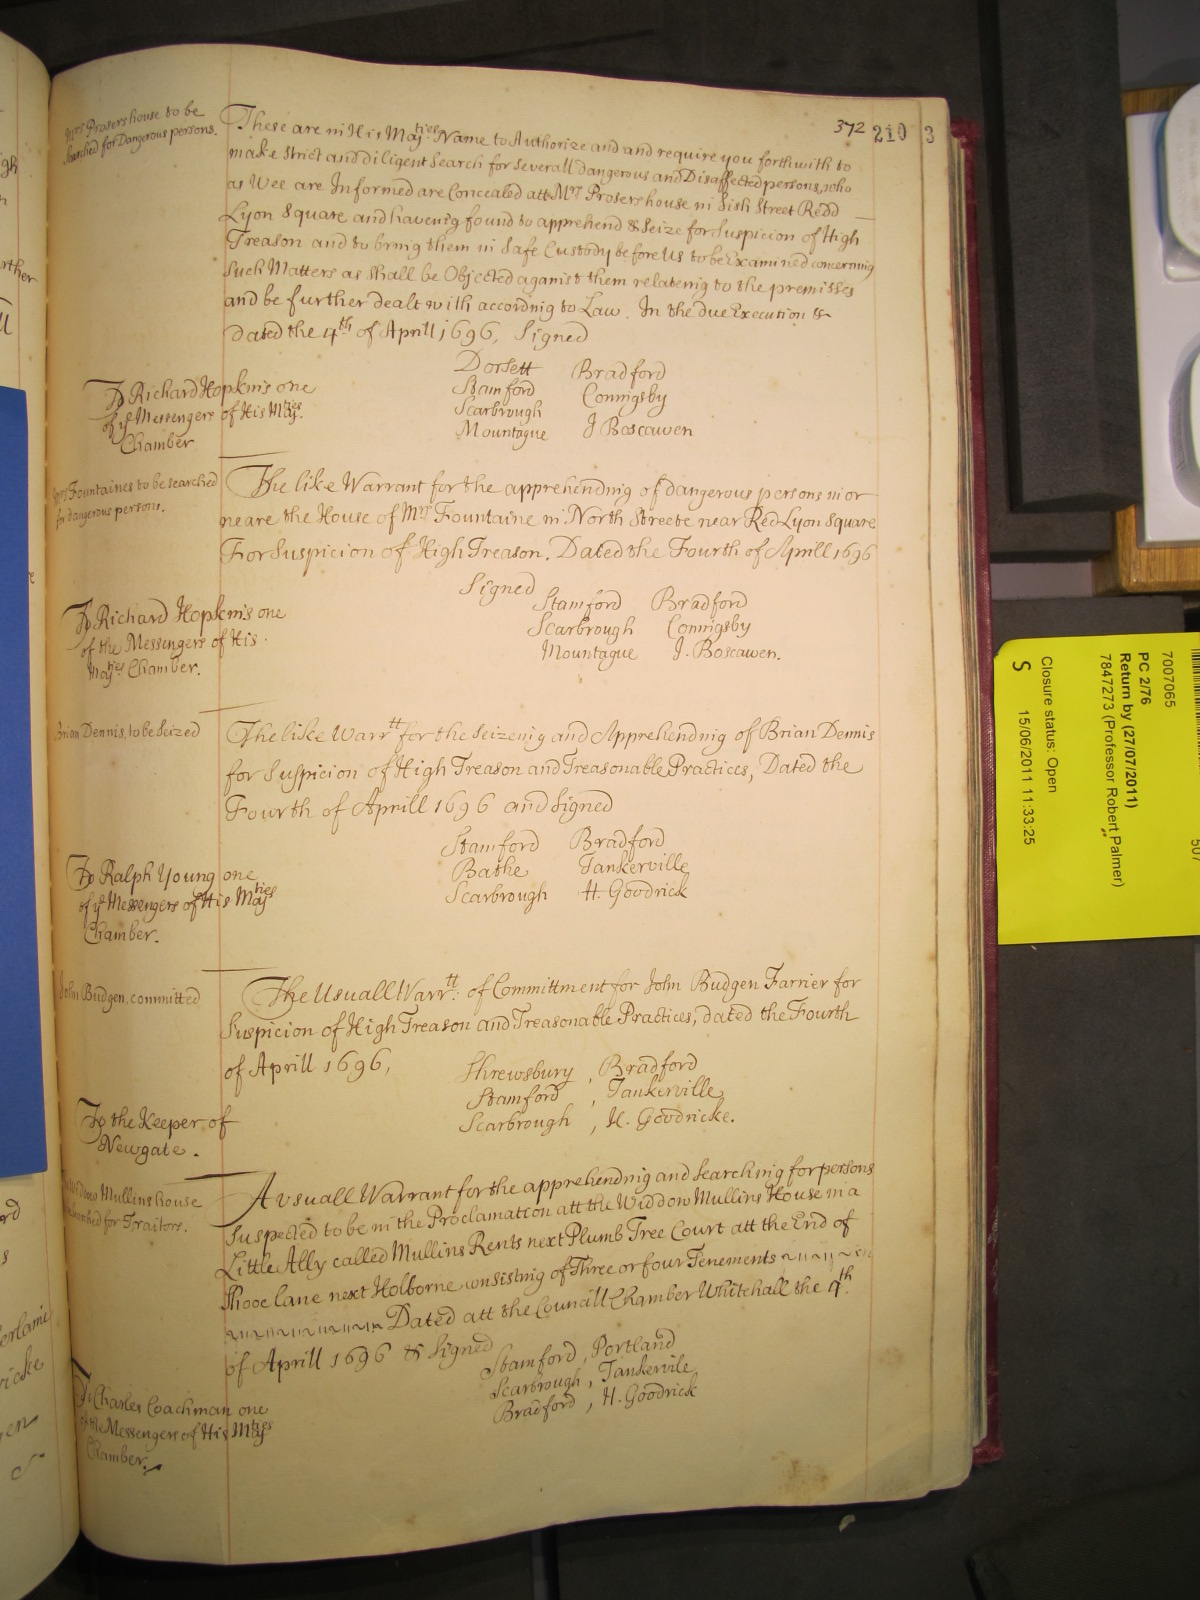 372 210 3
Mrs Prosers house to be
searched for Dangerous persons.
These are in His Maties Name to Authorize and and require you forthwith to
make Strict and diligent Search for severall dangerous and Disaffected persons, who
as Wee are Informed are Concealed att Mrs Prosers house in Fish Street Redd
Lyon Square and haveing found to apprehend & Seize for Suspicion of High
Treason and to bring them in Safe Custody before Us to be Examined concerning
Such Matters as shall be Objected against them relateing to the premisses
and be further dealt with according to Law. In the due Execution &
dated the 4th of Aprill 1696, Signed
Dorsett Bradford
Stamford Coningsby
Scarbrough J Boscawen
Mountague
To Richard Hopkins one
of ye Messengers of His Maties
Chamber
Mrs Fountaines to be searched
for dangerous persons.
The like Warrant for the apprehending of dangerous persons in or
neare the House of Mrs Fountaine in North Streete near Red Lyon Square
For Suspicion of High Treason. Dated the Fourth of Aprill 1696
Signed
Stamford Bradford
Scarbrough Coningsby
Mountague J. Boscawen.
To Richard Hopkins one
of the Messengers of His
Maties Chamber.
Brian Dennis, to be Seized
The like Warrtt for the Seizeing and Apprehending of Brian Dennis
for Suspicion of High Treason and Treasonable Practices, Dated the
Fourth of Aprill 1696 and Signed
Stamford Bradford
Bathe Tankerville
Scarbrough H. Goodrick
To Ralph Young one
of ye Messengers of His Maties
Chamber.
John Budgen, committed
The Usuall Warrtt: of Committment for John Budgen Farrier for
Suspicion of High Treason and Treasonable Practices, dated the Fourth
of Aprill 1696,
Shrewsbury , Bradford
Stamford , Tankerville
Scarbrough , H. Goodricke.
To the Keeper of
Newgate.
Widdow Mullins house
searched for Traitors.
A usuall Warrant for the apprehending and searching for persons
suspected to be in the Proclamation att the Widdow Mullins House in a
Little Ally called Mullins Rents next Plumb Tree Court att the End of
Shooe lane next Holborne consisting of Three or four Tenements
Dated att the Councill Chamber Whitehall the 4th
of Aprill 1696 & Signed
Stamford , Portland
Scarbrough , Tankervile
Bradford , H. Goodrick
To Charles Coachman one
of the Messengers of His Maties
Chamber.
7007065
PC 2/76
Return by (27/07/2011)
7847273 (Professor Robert Palmer)
Closure status: Open
S 15/06/2011 11:33:25